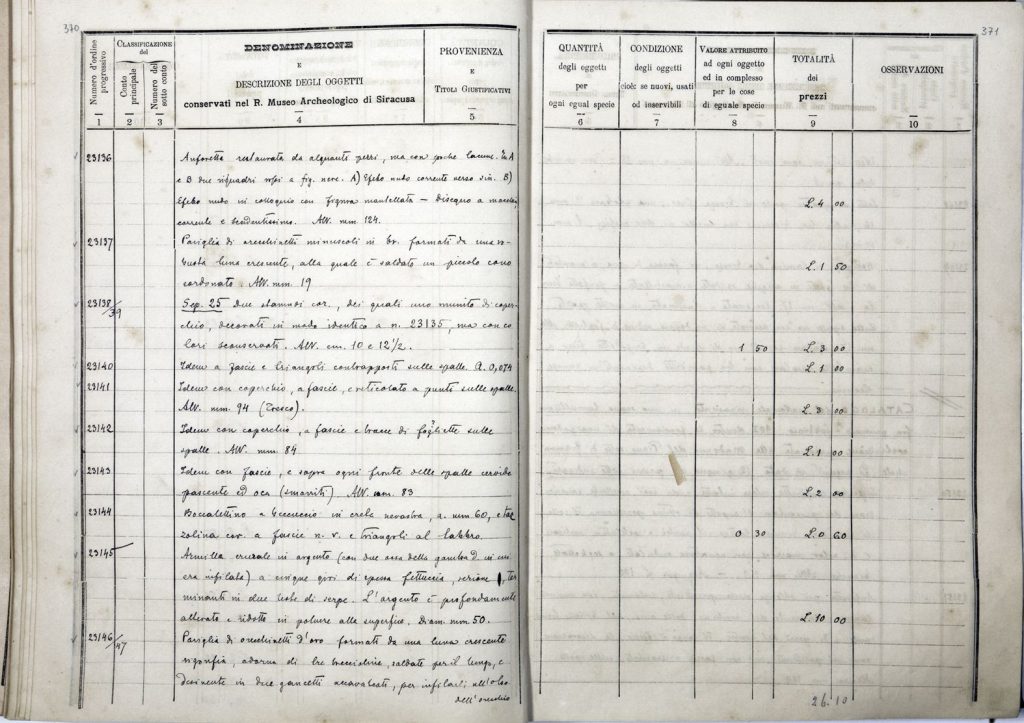 370
Numero d'ordine progressivo
Classificazione del
Conto principale
Numero del sotto conto
DENOMINAZIONE
E
DESCRIZIONE DEGLI OGGETTI
conservati nel R. Museo Archeologico di Siracusa
PROVENIENZA
E
Titoli Giustificativi
1 2 3 4 5
23136 Anforetta restaurata da alquanti pezzi, ma con poche lacune. In A
e B due riquadri rossi a fig. nere. A) Efebo nudo corrente verso sin. B)
Efebo nudo in colloquio con figura mantellata — disegno a macchia,
corrente e scadentissimo. Alt. mm. 124.
23137 Pariglia di orecchinetti minuscoli in br. formati da una
luna crescente, alla quale è saldato un piccolo cono
cordonato. Alt. mm. 19
23138/39 Sep. 25 due stamnoi cor., dei quali uno munito di coper-
chio, decorati in modo identico a n. 23135, ma con co
lori sconservati. Alt. cm. 10 e 12 1/2.
23140 Idem a fascie e triangoli contrapposti sulle spalle. A. 0,074
23141 Idem con coperchio, a fascie, e reticolato a punti sulle spalle.
Alt. mm. 94 (Tresco).
23142 Idem con coperchio, a fascie e tracce di fogliette sulle
spalle. Alt. mm. 84
23143 Idem con fascie, e sopra ogni fronte delle spalle cervide
pascente ed oca (smarriti) Alt. mm. 83
23144 Boccalettino a in creta nerastra, a. mm 60, e taz
zolina cor. a fascie n. v. e triangoli al labbro.
23145 Armilla crurale in argento (con due ossa della gamba d in cui
era infilata) a cinque giri di spessa fettuccia, ter
minanti in due teste di serpe. L'argento è profondamente
alterato e ridotto in polvere alla superficie. Diam. mm 50.
23146/47 Pariglia di orecchinetti d'oro formati da una luna crescente
rigonfia, adorna di tre treccioline, saldate per il lungo, e
desinente in due gancetti accavalcati, per infilarli all'
dell'orecchio
371
QUANTITÀ
degli oggetti
per
ogni egual specie
CONDIZIONE
degli oggetti
cioè: se nuovi, usati
od inservibili
Valore attribuito
ad ogni oggetto
ed in complesso
per le cose
di eguale specie
TOTALITÀ
dei
prezzi
OSSERVAZIONI
6 7 8 9 10
L. 4 00
L. 1 50
1 50 L. 3 00
L. 1 00
L. 3 00
L. 1 00
L. 2 00
0 30 L. 0 60
L. 10 00
26.10